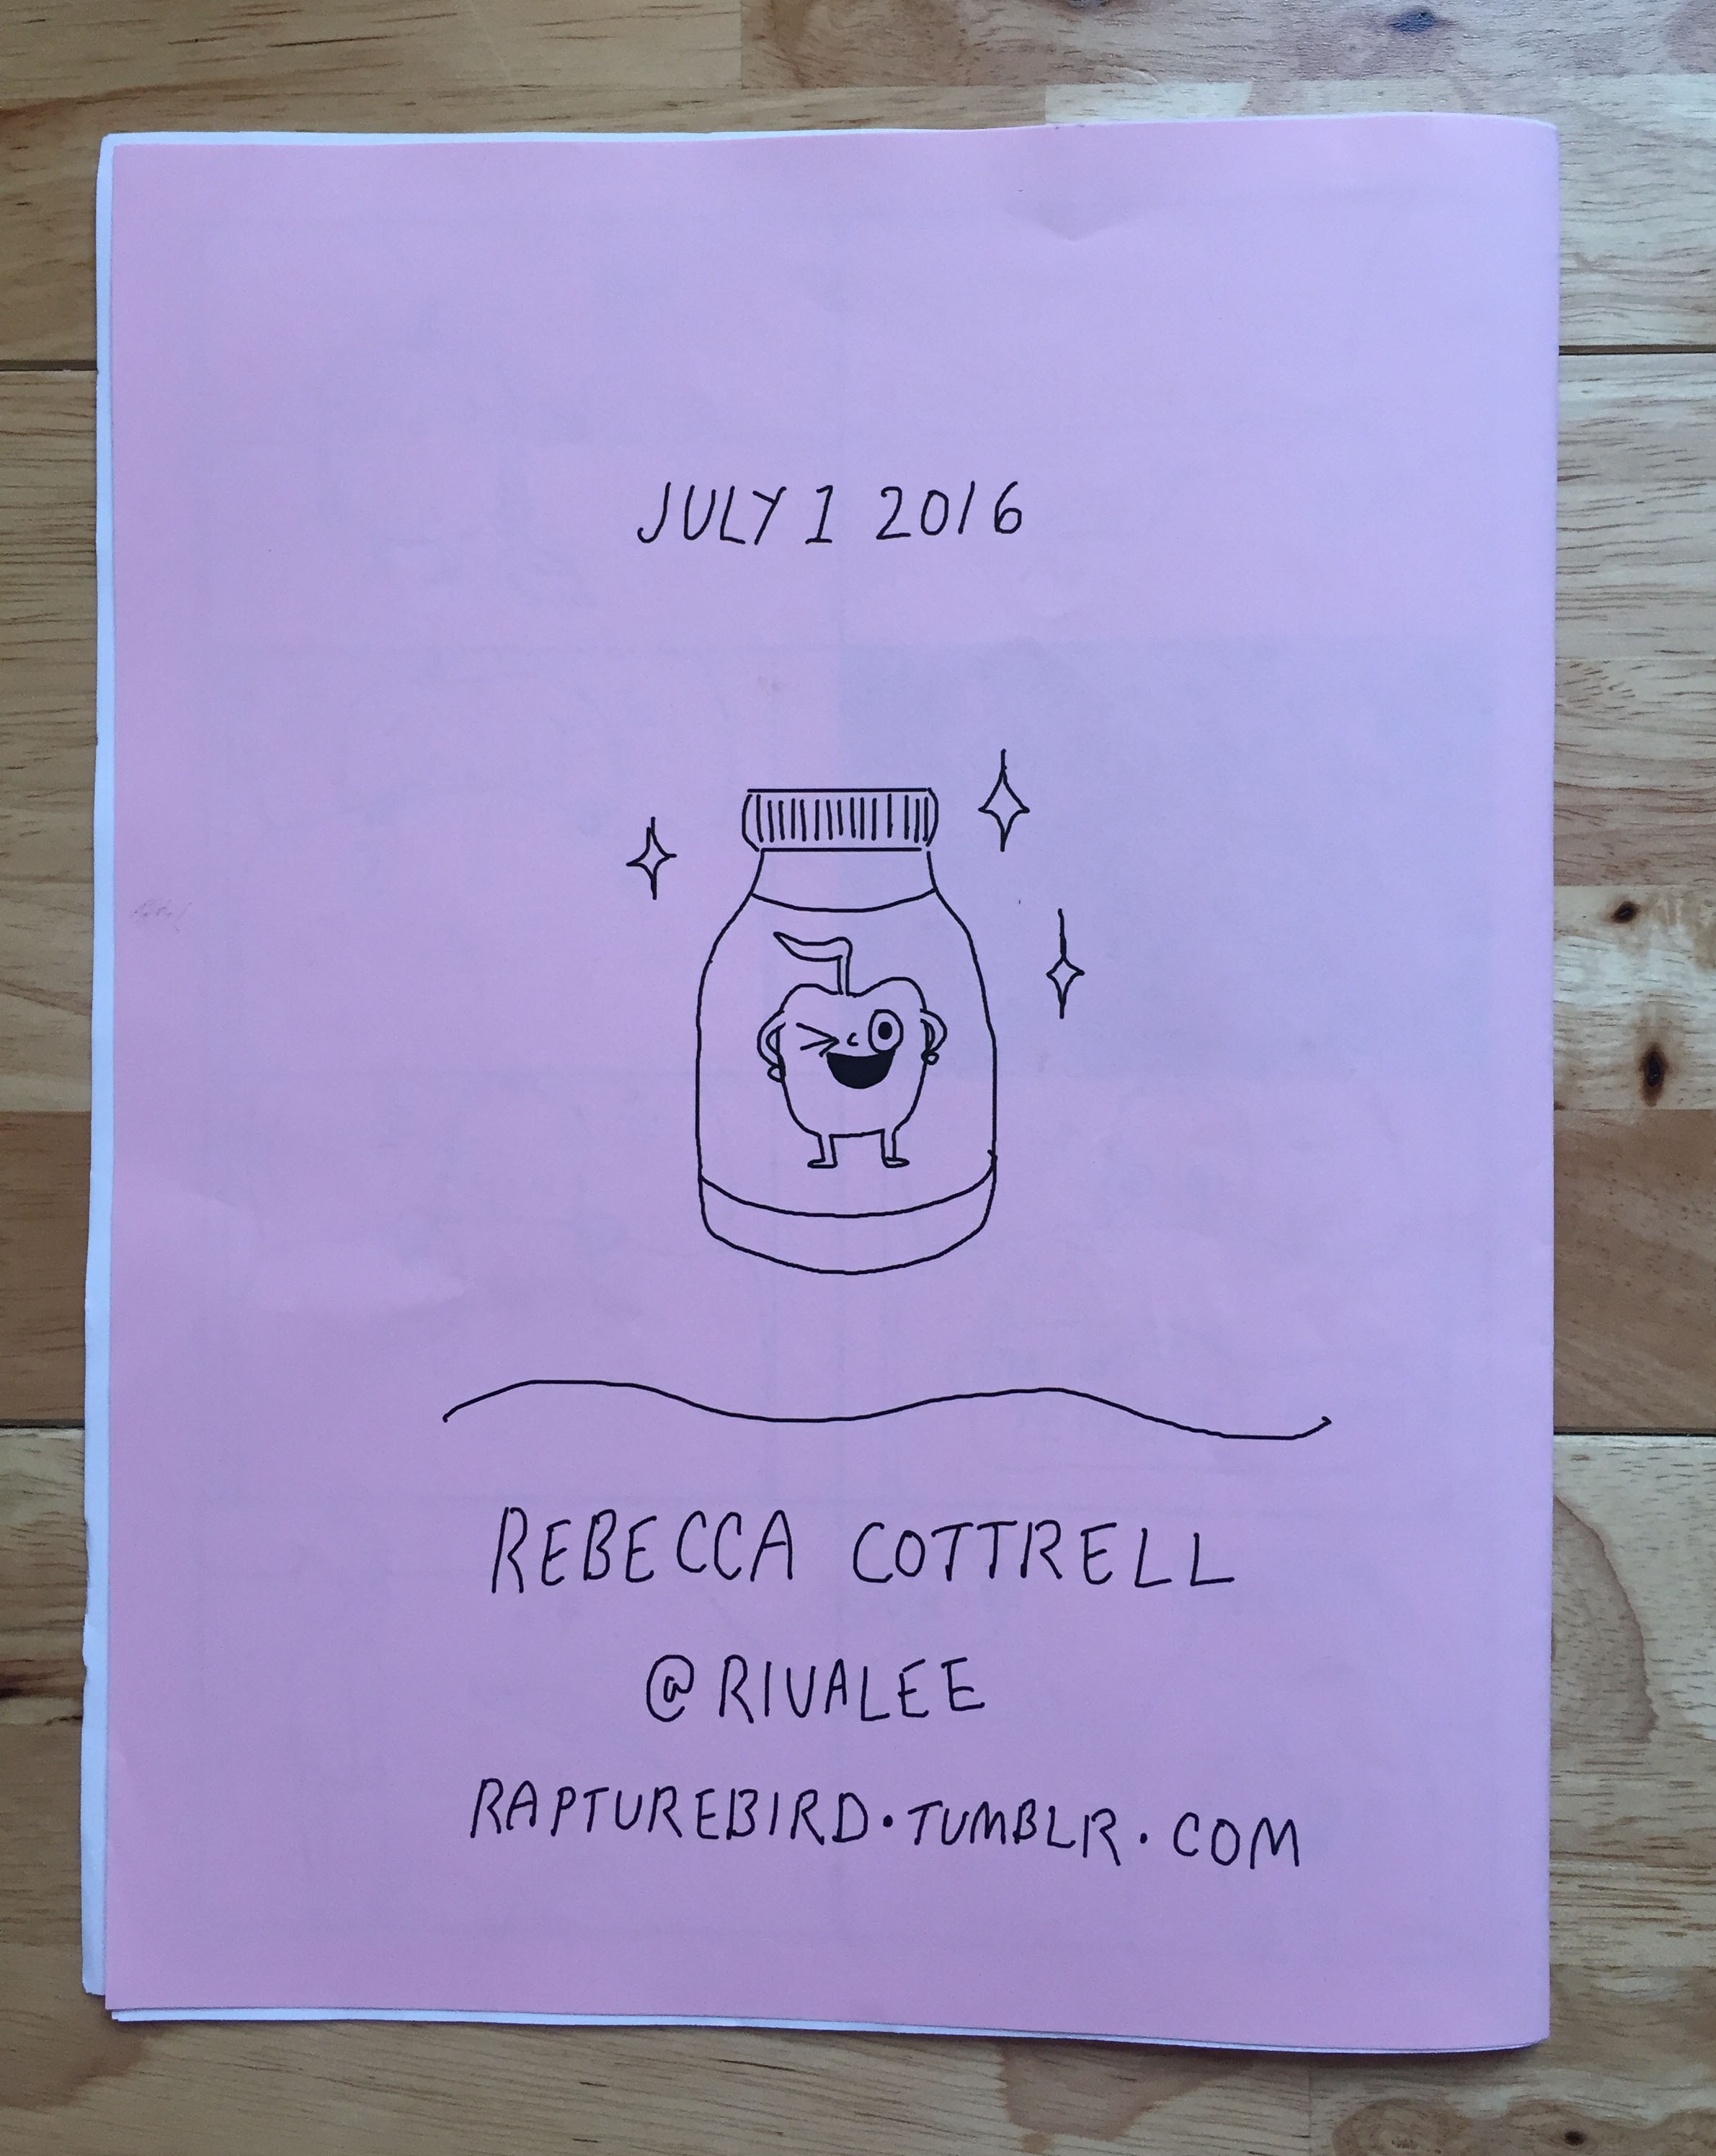 JULY 1 2016
REBECCA COTTRELL
@RIVALEE
RAPTUREBIRD.TUMBLR.COM